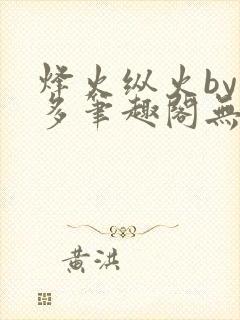 烽火纵火by
多笔趣阁無
黄洪